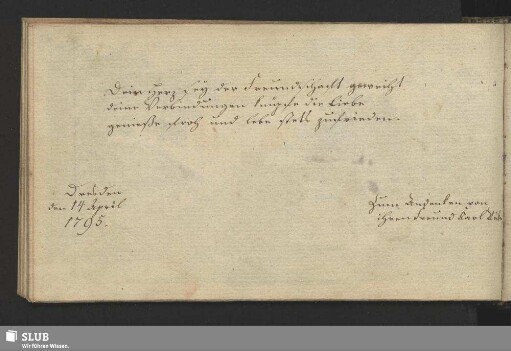 Dein Herz sey der Freundschaft geweiht
deine Verbindungen knüpfe die Liebe
genieße froh und lebe stets zufrieden.
Dresden
den 14 April
1795.
Zum Andenken von
ihren Freund Karl
SLUB
Wir führen Wissen.